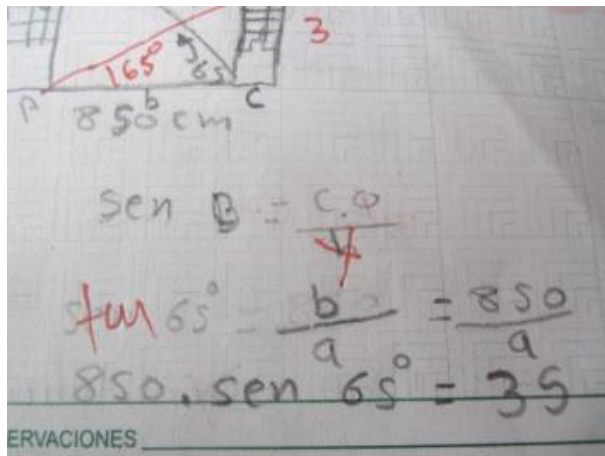 3
165° 65
A b C
850 cm
sen B = C.O
tan 65° = b/a = 850/a
850 . sen 65° = 35
ERVACIONES